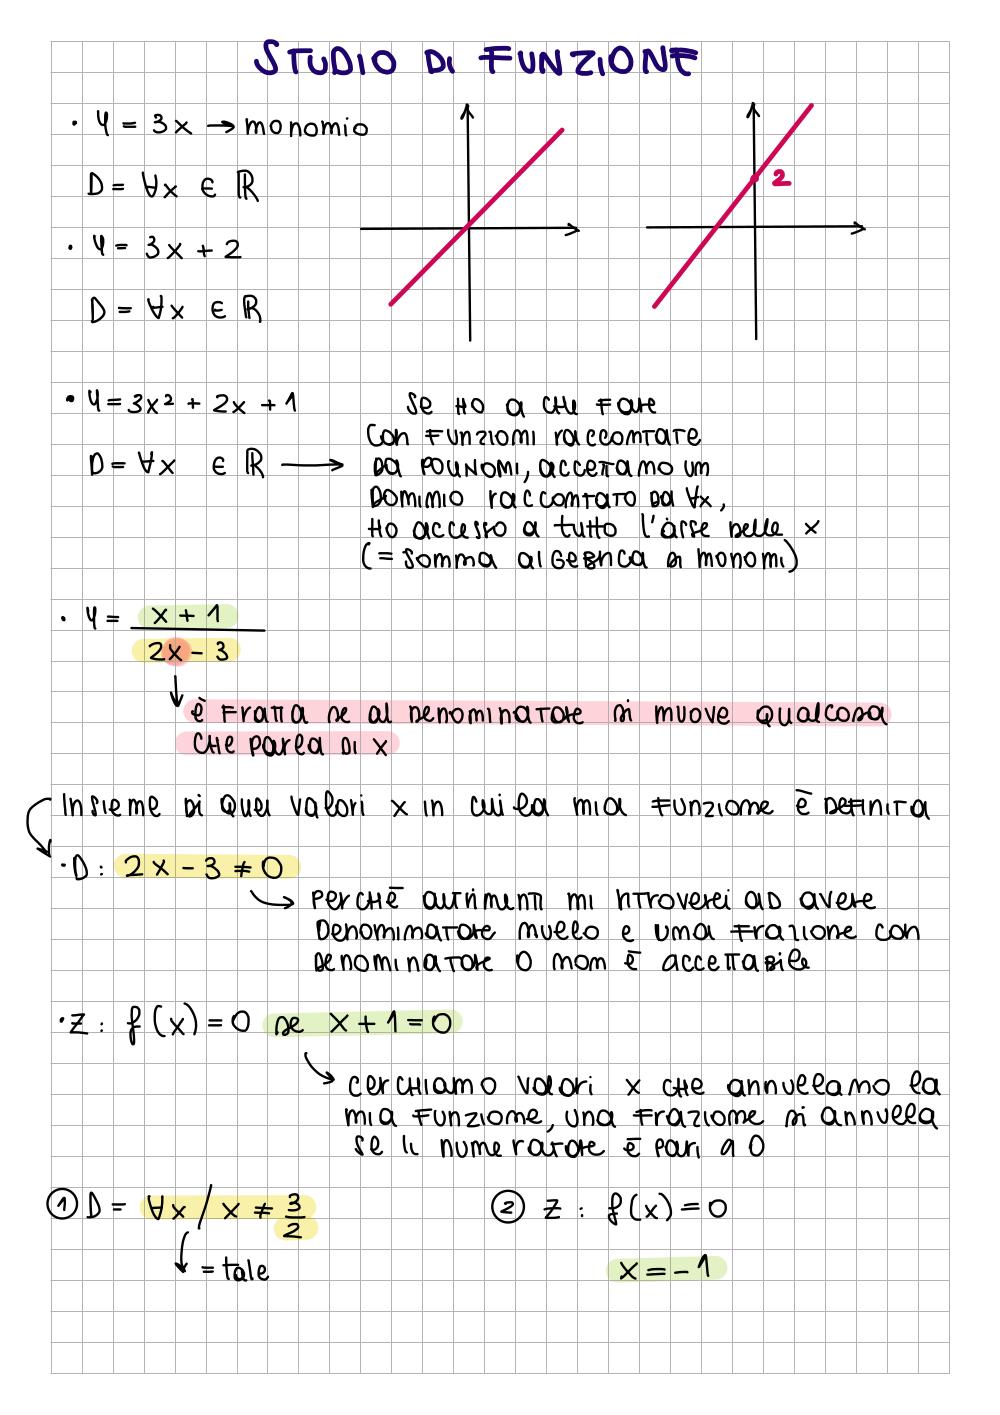 STUDIO DI FUNZIONE
• y = 3x → monomio
D = ∀x ∈ ℝ
• y = 3x + 2
D = ∀x ∈ ℝ
2
• y = 3x² + 2x + 1
D = ∀x ∈ ℝ →
Se ho a che fare
con funzioni raccontate
da polinomi, accettamo un
dominio raccontato da ∀x,
ho accesso a tutto l'asse delle x
(= somma algebrica di monomi)
• y = x + 1 / 2x - 3
è fratta se al denominatore si muove qualcosa
che parla di x
Insieme di quei valori x in cui la mia funzione è definita
• D : 2x - 3 ≠ 0
perchè altrimenti mi ritroverei ad avere
denominatore nullo e una frazione con
denominatore 0 non è accettabile
• Z : f(x) = 0 se x + 1 = 0
cerchiamo valori x che annullano la
mia funzione, una frazione si annulla
se il numeratore è pari a 0
① D = ∀x / x ≠ 3/2
= tale
② Z : f(x) = 0
x = -1